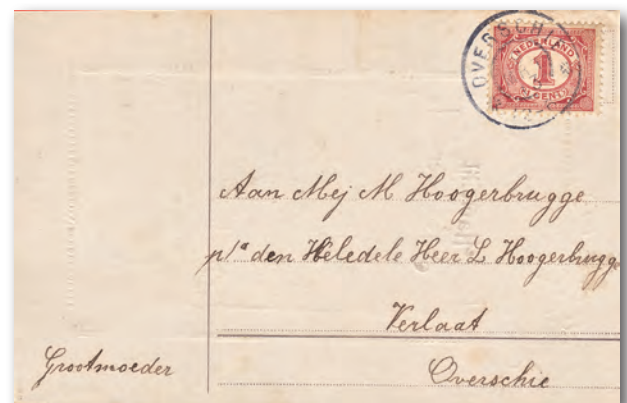 OVERSCHIE
NEDERLAND
1
CENT
Aan Mej M Hoogerbrugge
p/a den WelEdele Heer L Hoogerbrugge
Verlaat
Overschie
Grootmoeder